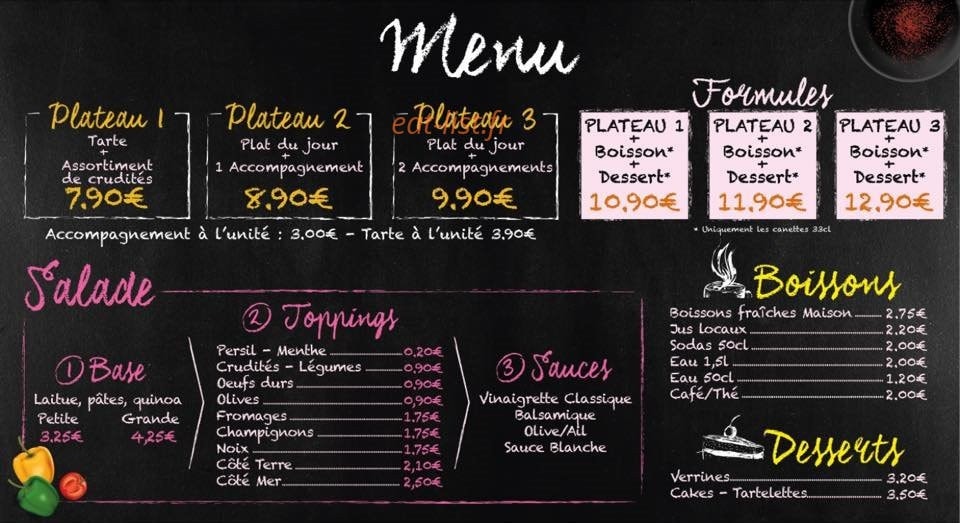 Menu
Plateau 1
Tarte
+
Assortiment
de crudités
7.90€
Plateau 2
Plat du jour
+
1 Accompagnement
8.90€
Plateau 3
Plat du jour
+
2 Accompagnements
9.90€
Accompagnement à l'unité : 3.00€ - Tarte à l'unité 3.90€
Formules
PLATEAU 1
+
Boisson*
+
Dessert*
10.90€
PLATEAU 2
+
Boisson*
+
Dessert*
11.90€
PLATEAU 3
+
Boisson*
+
Dessert*
12.90€
* Uniquement les canettes 33cl
Salade
1 Base
Laitue, pâtes, quinoa
Petite Grande
3,25€ 4,25€
2 Toppings
Persil - Menthe 0,20€
Crudités - Légumes 0,90€
Oeufs durs 0,90€
Olives 0,90€
Fromages 1.75€
Champignons 1.75€
Noix 1.75€
Côté Terre 2,10€
Côté Mer 2,50€
3 Sauces
Vinaigrette Classique
Balsamique
Olive/Ail
Sauce Blanche
Boissons
Boissons fraîches Maison 2.75€
Jus locaux 2.20€
Sodas 50cl 2.00€
Eau 1,5l 2,00€
Eau 50cl 1.20€
Café/Thé 2.00€
Desserts
Verrines 3.20€
Cakes - Tartelettes 3.50€